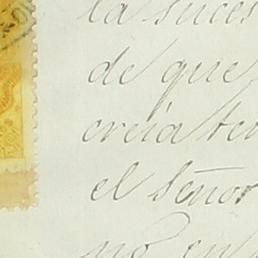 la suces
de que
creia ten
el Señor
no en